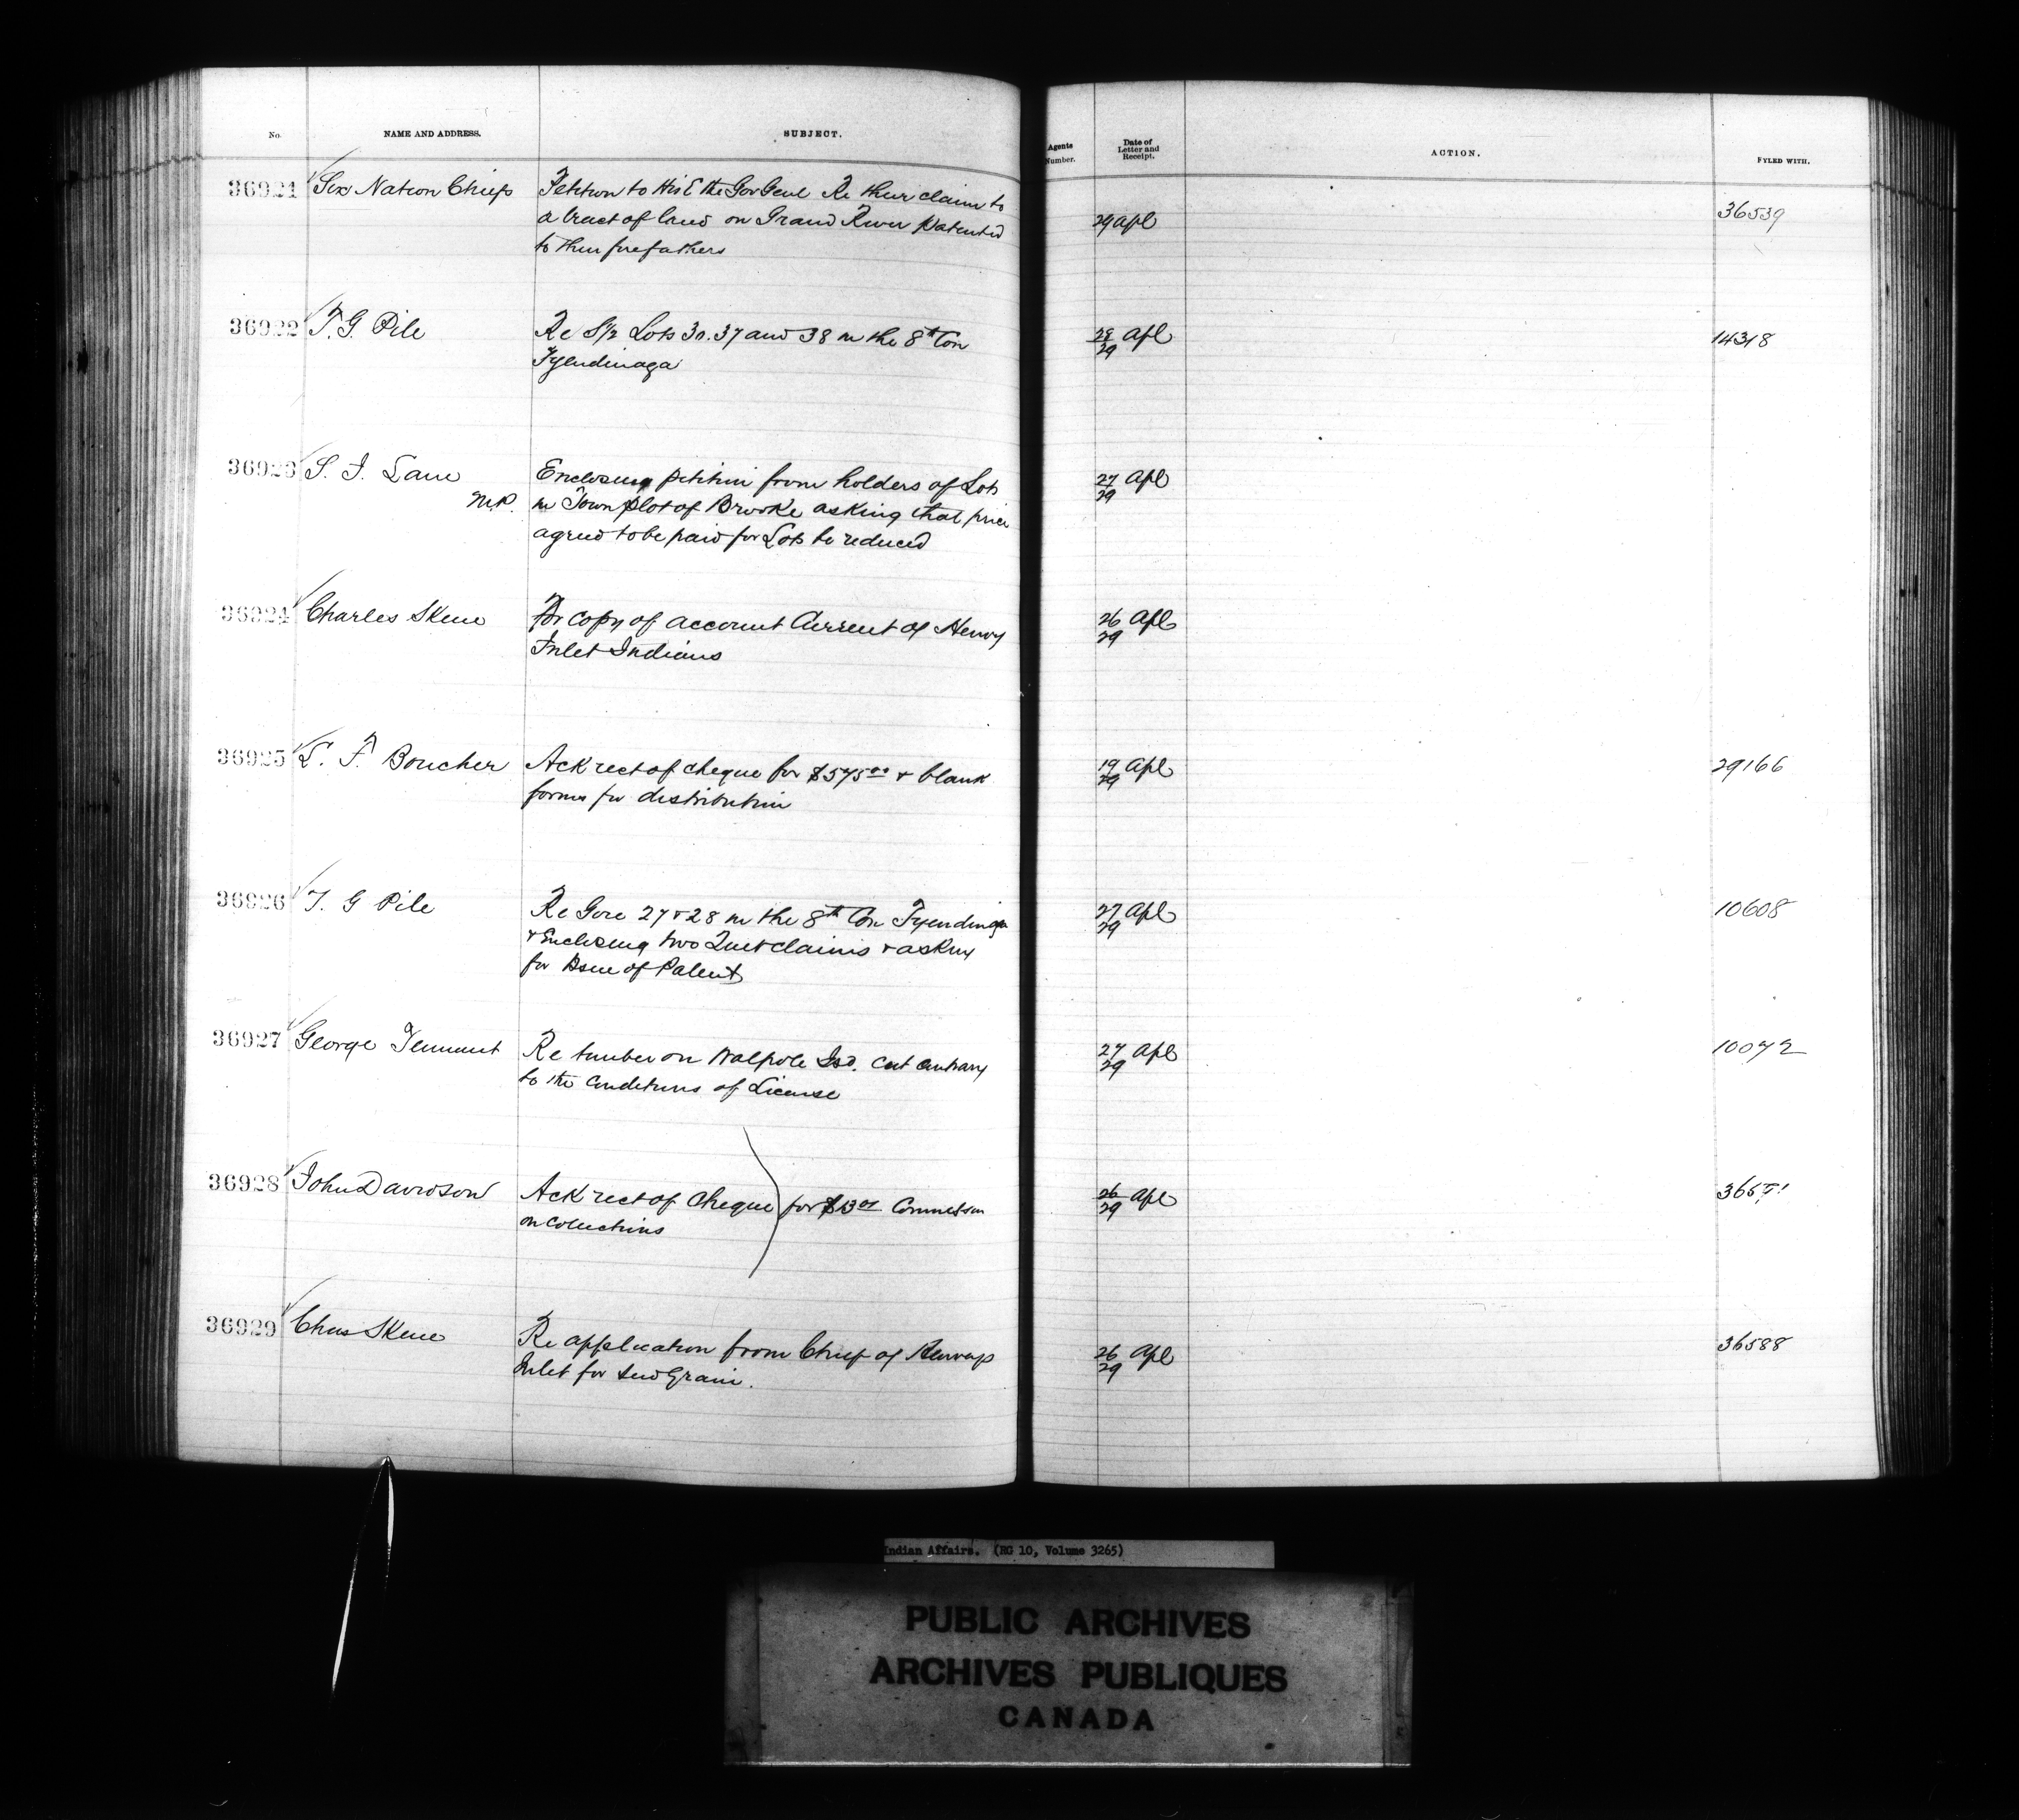 No. NAME AND ADDRESS. SUBJECT. Agents Number. Date of Letter and Receipt. ACTION. FYLED WITH.
36921 Six Nation Chiefs Petition to His E the Gov Genl Re their claim to
a tract of land on Grand River Patented 29 Apl 36539
to their forefathers
36922 T. G. Pile Re S½ Lots 37 and 38 in the 8th Con 28/29 Apl 14318
Tyendinaga
36923 S. J. Lane Enclosing petition from holders of Lots 27/29 Apl
M.P. in Town plot of Brooke asking that price
agreed to be paid for Lots be reduced
36924 Charles Skene For copy of account Current of Henvey 26/29 Apl
Inlet Indians
36925 L. F. Boucher Ack rect of cheque for $575.00 + blank 19/29 Apl 29166
forms for distribution
36926 T. G Pile Re Gore 27 + 28 in the 8th Con Tyendinaga 27/29 Apl 10608
+ Enclosing two Quit claims + asking
for Issue of Patent
36927 George Tennant Re timber on Walpole Isd. cut contrary 27/29 Apl 10072
to the Conditions of License
36928 John Davidson Ack rect of Cheque for Commission 26/29 Apl
on Collections
36929 Chas Skene Re application from Chief of Henveys 26/29 Apl 36588
Inlet for seed Grain.
Indian Affairs. (RG 10, Volume 3265)
PUBLIC ARCHIVES
ARCHIVES PUBLIQUES
CANADA